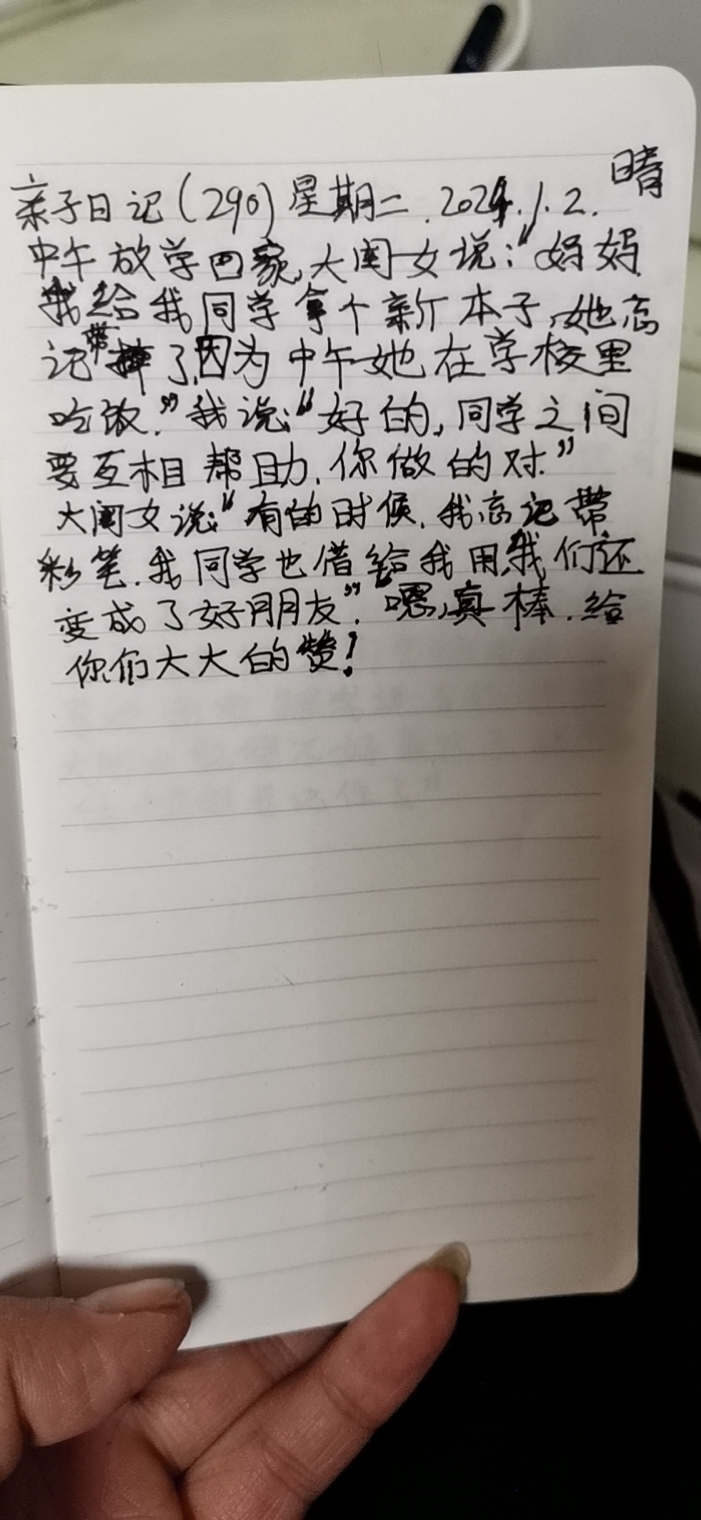 亲子日记(290)星期二.2024.1.2. 晴
中午放学回家,大闺女说:“妈妈
我给我同学拿个新本子,她忘
记带了,因为中午她在学校里
吃饭.”我说:“好的,同学之间
要互相帮助.你做的对.”
大闺女说:“有的时候.我忘记带
彩笔.我同学也借给我用,我们还
变成了好朋友”.“嗯,真棒.给
你们大大的赞!